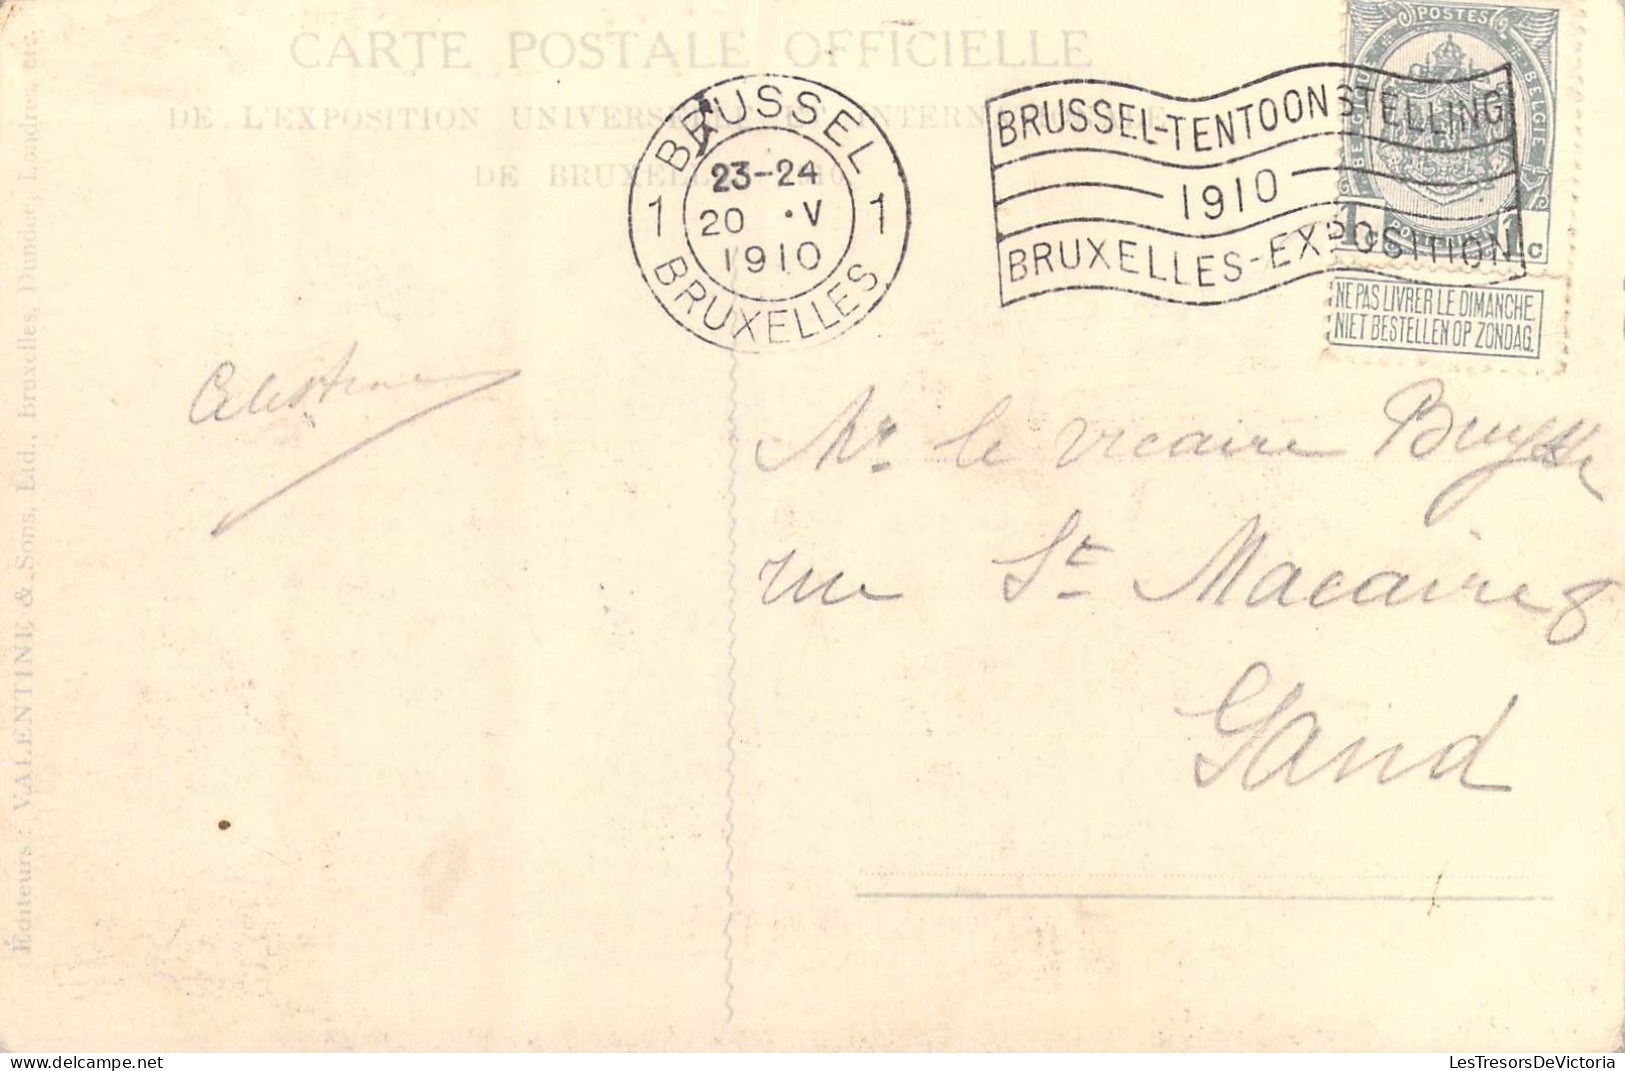 CARTE POSTALE OFFICIELLE
DE L'EXPOSITION UNIVERSELLE ET INTERNATIONALE
DE BRUXELLES 1910
BRUSSEL
1 23-24 1
20 · V
1910
BRUXELLES
BRUSSEL-TENTOONSTELLING
1910
BRUXELLES-EXPOSITION
POSTES
BELGIQUE BELGIË
POSTERIJEN
1 C 1 C
NE PAS LIVRER LE DIMANCHE.
NIET BESTELLEN OP ZONDAG.
Mr. le vicaire Buysse
rue St Macaire 8
Gand
Éditeurs: VALENTINE & Sons, Ltd., Bruxelles, Dundee, Londres, etc.
LesTresorsDeVictoria
delcampe.net